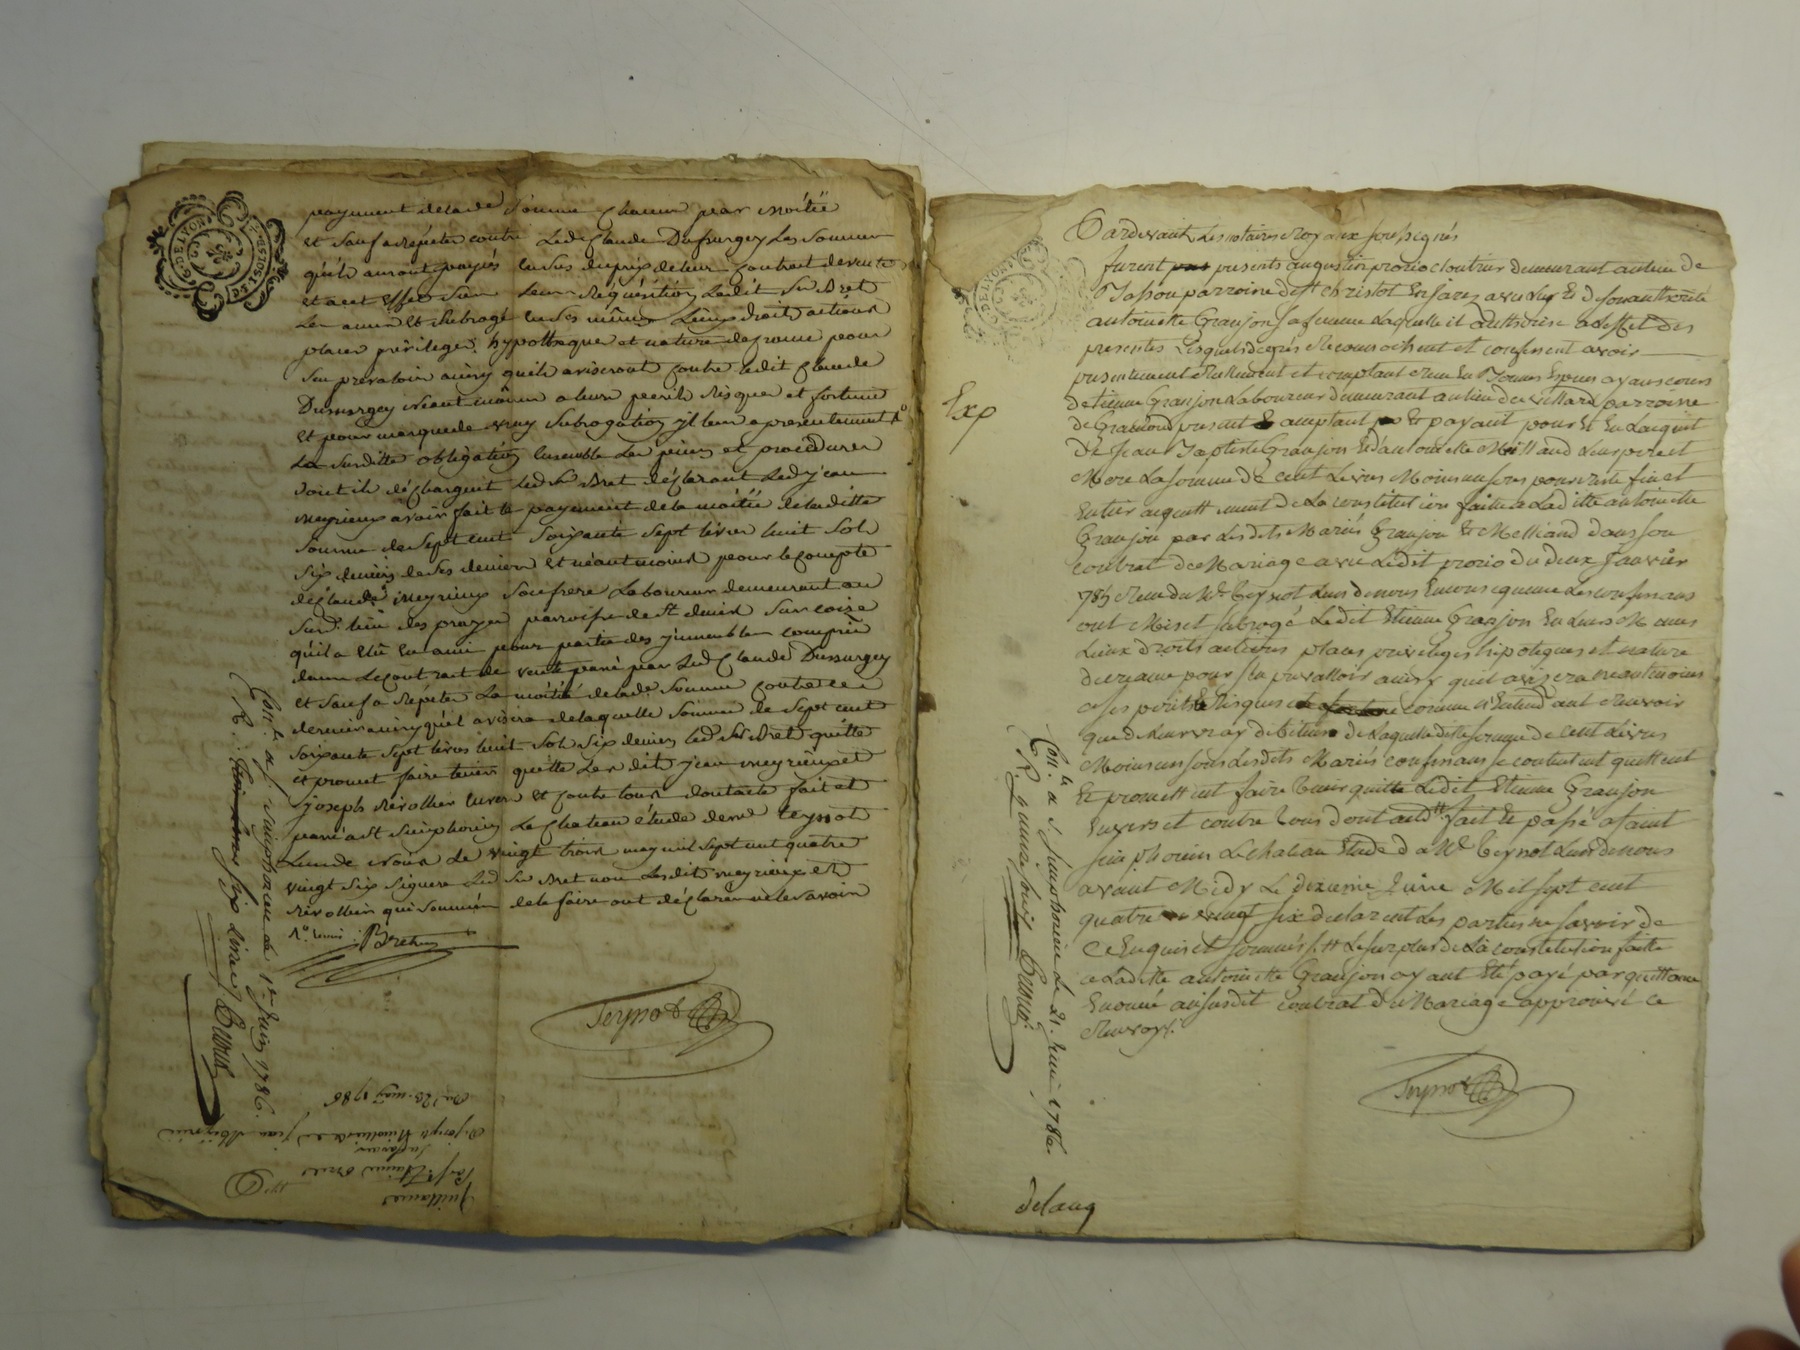 payement de lade somme chacun par moitié
et sauf a Répéter contre Led Claude Dussurgey Les Sommes
qu'ils auront payés en sus du prix de leur contrait de vente
et a cet effet sieur leur Réquisition Ledit Sr Bret
Les a mis et subrogé en ses mêmes Lieux droits actions
places privileges hypotheque et nature de fraicte pour
s'en prévaloir ainsy qu'ils aviseront contre ledit Claude
Dussurgey néant moins a leurs perils Risques et fortune
et pour marque de vray subrogation il leur a presentement Ro
La susditte obligation ensemble Les pieces et procédures
dont ils déchargent Led Sr Bret déclarant Led jean
meyrieux avoir fait le payement de la moitié de laditte
somme de sept cent soixante sept livres huit sols
six deniers de ses deniers et néantmoins pour le compte
de Claude meyrieux son frere Laboureur demeurant au
surd. lieu des prazes parroisse de St denis sur coise
qu'il a élû en ami pour partie des jmmeubles compris
dans Le contrait de vente passé par Led Claude Dussurgey
et sauf a Répéter La moitié de lade somme contre ce
dernier ainsy qu'il avisera de laquelle somme de sept cent
soixante sept livres huit sols six deniers led Sr Bret quitte
et promet faire tenir quitte Les dit jean meyrieux et
joseph Révollier envers et contre tous dont acte fait et
passé a St Simphorien Le Chateau étude de me Teyssot
L'un de nous Le vingt trois may mil sept cent quatre
vingt six signera Led Sr Bret non Lesdit meyrieux et
Révollier qui sommés de le faire ont déclaré ne le savoir
Ro remis
Bret
Teyssot
Con.lé a s. simphorien le 1er juin 1786.
R. six livres
Quittance
Par sr Bret
En faveur
De joseph Révollier et jean Meyrieu
Du 23. may 1786
Exp
Pardevant Les notaires Royaux soussignés
furent presents augustin prorio cloutrier demeurant au lieu de
Jasson parroine de St Christot En Jarez avec Luy Et de son authorité
antoinette Granjon sa femme Laquelle il authorise a L'effet des
presentes Lesquels de gré Reconnoissent et confessent avoir
presentement Réellement et comptant Receu En Bonnes Especes ayant cours
d'etienne Granjon Laboureur demeurant au lieu du villard parroine
de Grammond present acceptant Et payant pour Et En Lacquit
de Jean Baptiste Granjon Et d'antoinette Meilland Leurs pere et
Mere La somme de cent Livres Moins un sous pour reste fin et
Entier acquittement de La constitution faitte a Laditte antoinette
Granjon par Lesdits Mariés Granjon Et Melliand dans son
contrat de Mariage avec Ledit prorio du deux Janvier
785 Receu du Me Teyssot L'un de nous En consequence Les confessans
ont Mis et subrogé Ledit Etienne Granjon En Leurs Memes
Lieux droits actions places privileges hipoteques et nature
de creance pour s'en prevalloir ainsy quil avisera neantmoins
a ses perils Et Risques comme n'Entendant Recevoir
que de leur vray debiteur de Laquelle ditte somme de cent Livres
Moins un sous Lesdits Mariés confessans se contentent quittent
Et promettent faire tenir quitte Ledit Etienne Granjon
Envers et contre tous dont acte fait Et passé a saint
simphorien Le chateau Etude de Me Teyssot L'un de nous
avant Midy Le dixieme Juin Mil sept cent
quatre vingt six declarent Les parties ne savoir de
ce Enquis et sommés Le surplus de La constitution faitte
a Laditte antoinette Granjon ayant Eté payé par quittance
Enoncé au susdit contrat de Mariage approuvé ce
Renvoy.
Teyssot
Con.lé a s. simphorien Le 21. Juin 1786.
R. quinze sous
delauq